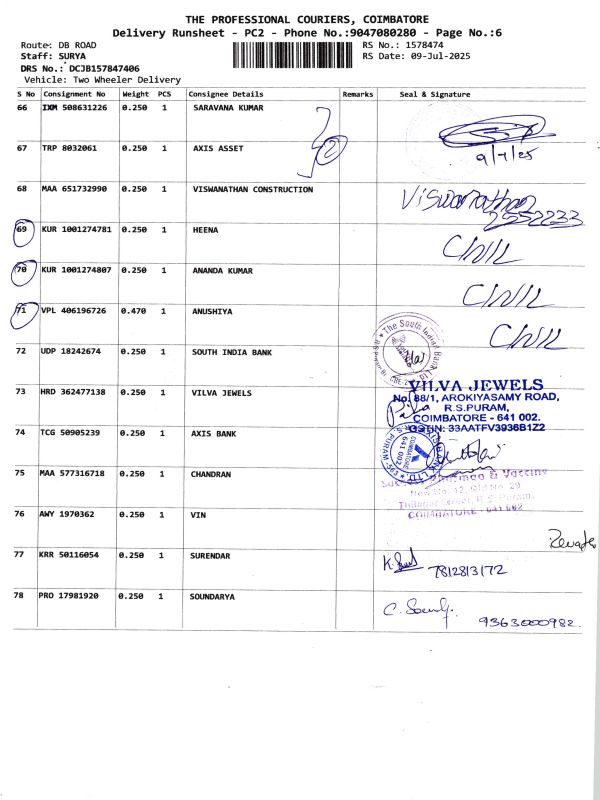 THE PROFESSIONAL COURIERS, COIMBATORE
Delivery Runsheet - PC2 - Phone No.:9047080280 - Page No.:6
Route: DB ROAD RS No.: 1578474
Staff: SURYA RS Date: 09-Jul-2025
DRS No.: DCJB157847406
Vehicle: Two Wheeler Delivery
S No Consignment No Weight PCS Consignee Details Remarks Seal & Signature
66 IXM 508631226 0.250 1 SARAVANA KUMAR
67 TRP 8032061 0.250 1 AXIS ASSET 2 9/7/25
68 MAA 651732990 0.250 1 VISWANATHAN CONSTRUCTION Viswanathan
2552233
69 KUR 1001274781 0.250 1 HEENA
70 KUR 1001274807 0.250 1 ANANDA KUMAR
71 VPL 406196726 0.470 1 ANUSHIYA
The South Indian Bank Ltd
72 UDP 18242674 0.250 1 SOUTH INDIA BANK
73 HRD 362477138 1.250 1 VILVA JEWELS
VILVA JEWELS
No. 88/1, AROKIYASAMY ROAD,
R.S.PURAM,
COIMBATORE - 641 002.
GSTIN: 33AATFV3936B1Z2
74 TCG 50905239 0.250 1 AXIS BANK
AXIS BANK LTD. R.S. PURAM, CBE-
COIMBATORE
641 002
75 MAA 577316718 0.250 1 CHANDRAN
& Vaccine
New No. 12, Old No. 29
R.S. Puram,
COIMBATORE - 641 002
76 AWY 1970362 0.250 1 VIN
77 KRR 50116054 0.250 1 SURENDAR 7812813172
78 PRO 17981920 0.250 1 SOUNDARYA 9363000982.